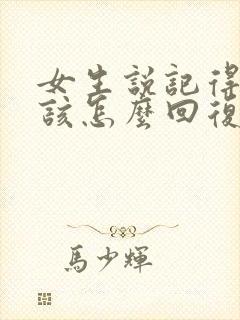 女生說記得
該怎麼回復
馬少輝